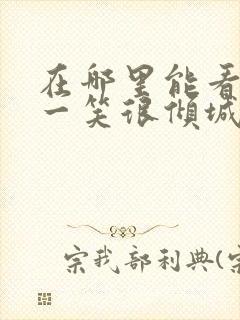 在哪里能看
一笑很倾城
宗我部利典(宗